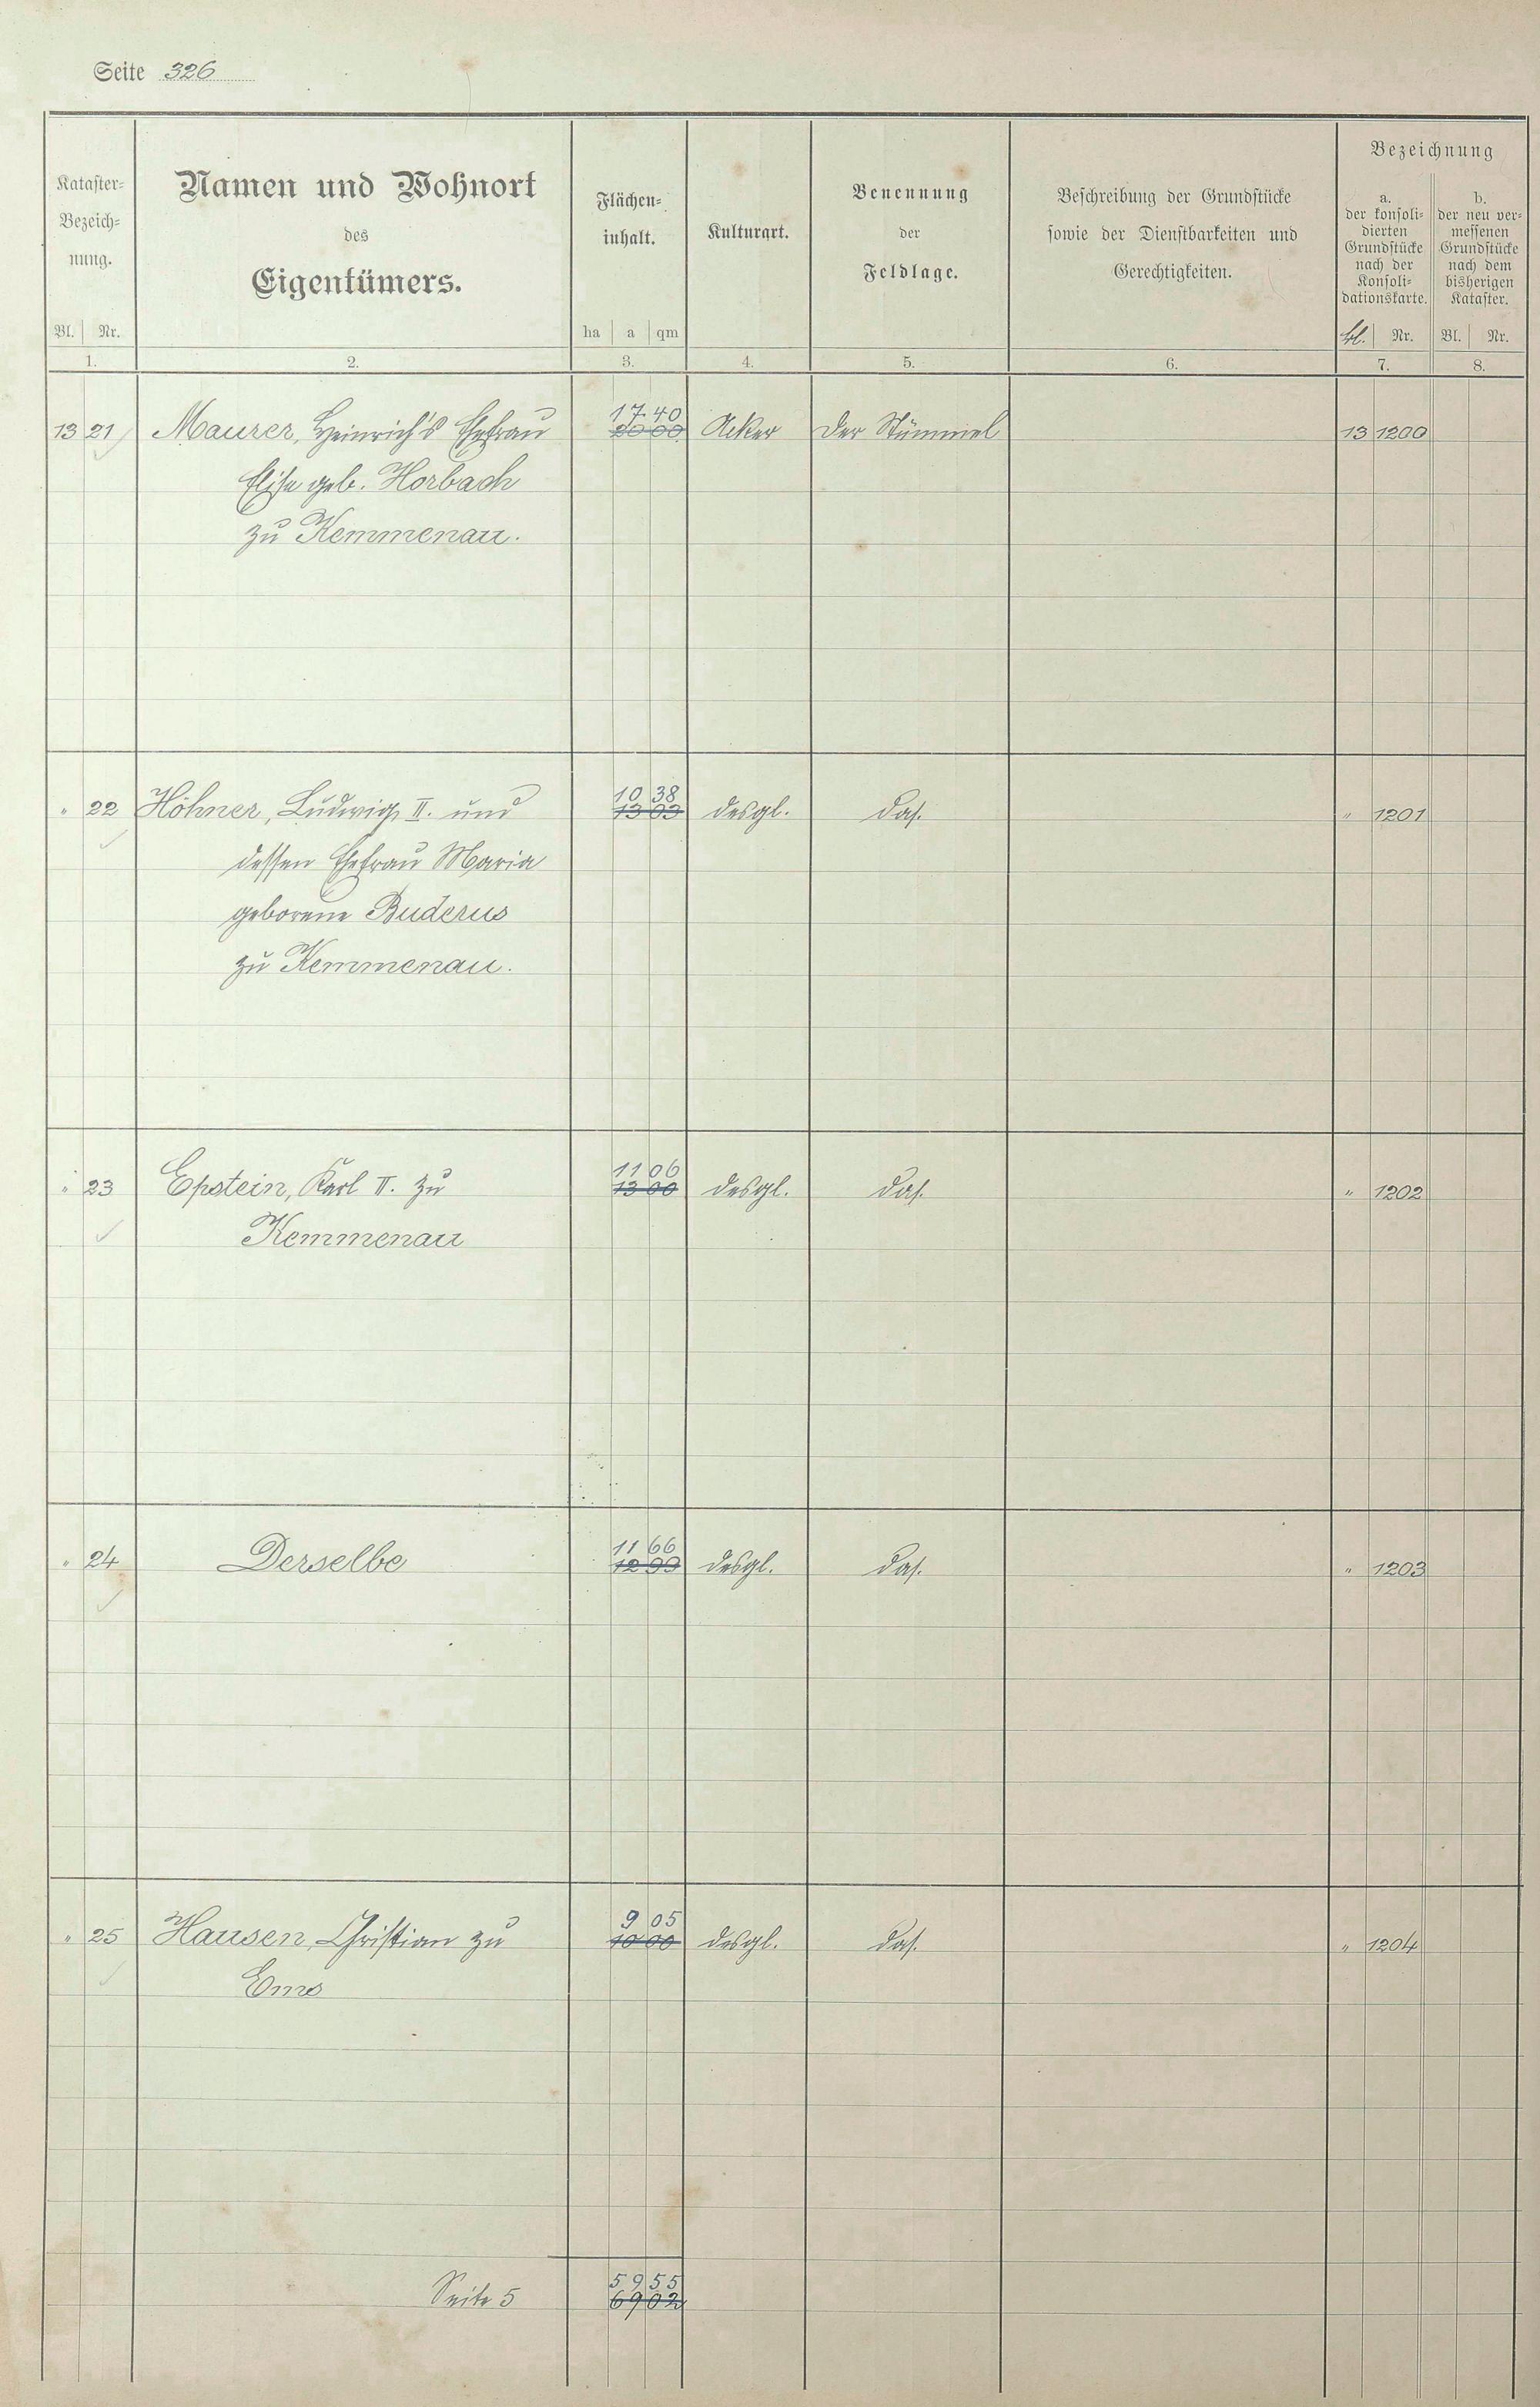 Seite 326
Kataster-
Bezeich-
nung.
Bl. Nr.
1.
Namen und Wohnort
des
Eigentümers.
2.
Flächen-
inhalt.
ha a qm
3.
Kulturart.
4.
Benennung
der
Feldlage.
5.
Beschreibung der Grundstücke
sowie der Dienstbarkeiten und
Gerechtigkeiten.
6.
Bezeichnung
a.
der konsoli-
dierten
Grundstücke
nach der
Konsoli-
dationskarte.
Bl. Nr.
7.
b.
der neu ver-
messenen
Grundstücke
nach dem
bisherigen
Kataster.
Bl. Nr.
8.
17 40
13 21 Maurer, Heinrich's Ehefrau 20 00 Acker Der Stümmel 13 1200
Elise geb. Horbach
zu Kemmenau.
10 38
" 22 Höhner, Ludwig II. und 13 03 desgl. das. " 1201
dessen Ehefrau Maria
geborene Buderus
zu Kemmenau.
11 06
" 23 Epstein, Karl II. zu 13 00 desgl. das. " 1202
Kemmenau
11 66
" 24 Derselbe 12 99 desgl. das. " 1203
9 05
" 25 Hausen, Christian zu 10 00 desgl. das. " 1204
Ems
59 55
Seite 5 69 02